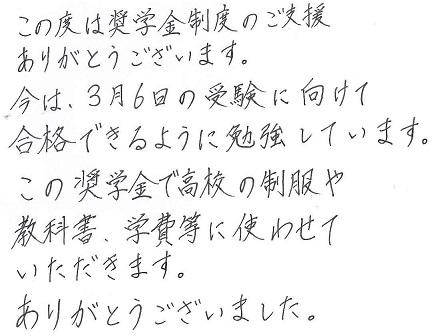 この度は奨学金制度のご支援
ありがとうございます。
今は、3月6日の受験に向けて
合格できるように勉強しています。
この奨学金で高校の制服や
教科書、学費等に使わせて
いただきます。
ありがとうございました。